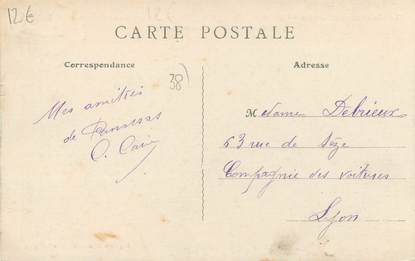 12€
CARTE POSTALE
Correspondance
38
Adresse
Mes amitiés
de
Madame Debrieux
63 rue de Sèze
Compagnie des voitures
Lyon